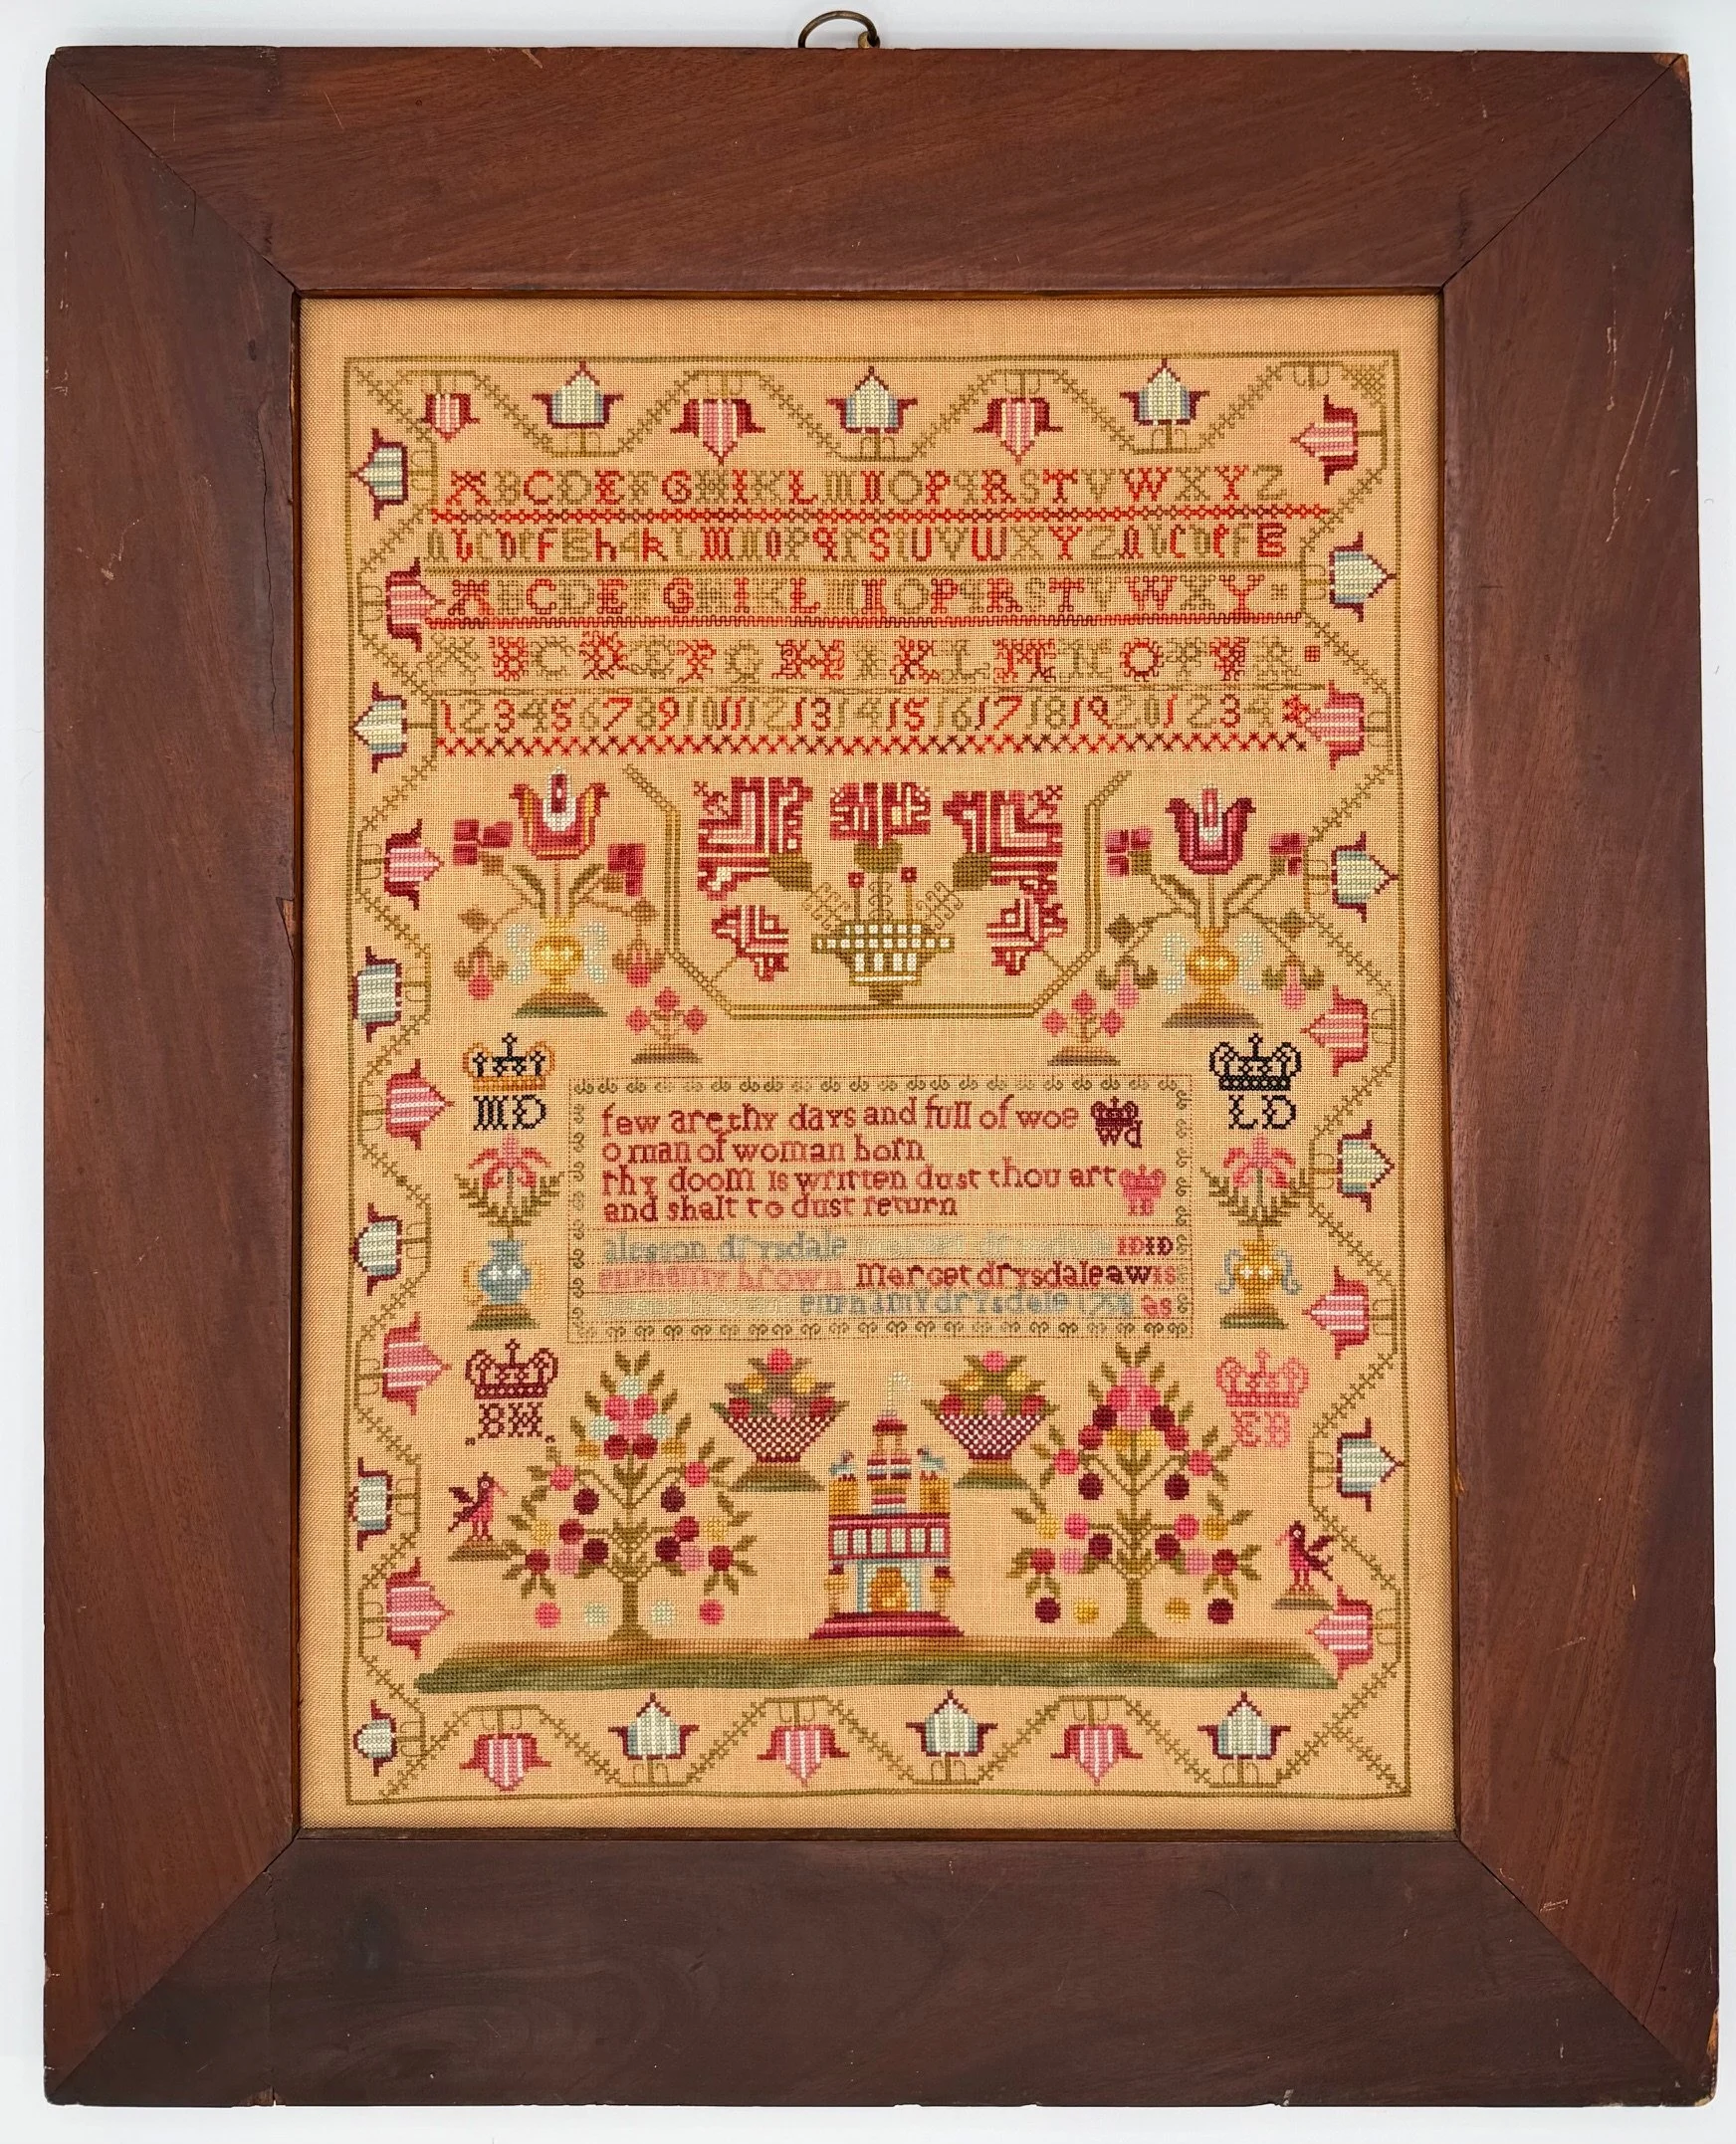 A B C D E F G H I K L M N O P Q R S T V W X Y Z
a b c d e f g h k l M n o p q r s t U V W X Y Z a b c d e f g
A B C D E F G H I K L M N O P Q R S T V W X Y
A B C D E F G H I K L M N O P Q R
1 2 3 4 5 6 7 8 9 10 11 12 13 14 15 16 17 18 19 20 1 2 3 4
MD LD
few are thy days and full of woe WD
o man of woman born
thy doom is written dust thou art IB
and shalt to dust return
alesson drysdale drysdale ID ID
euphemy brown Marget drysdale aw is
euphimy drysdale as
BH EB